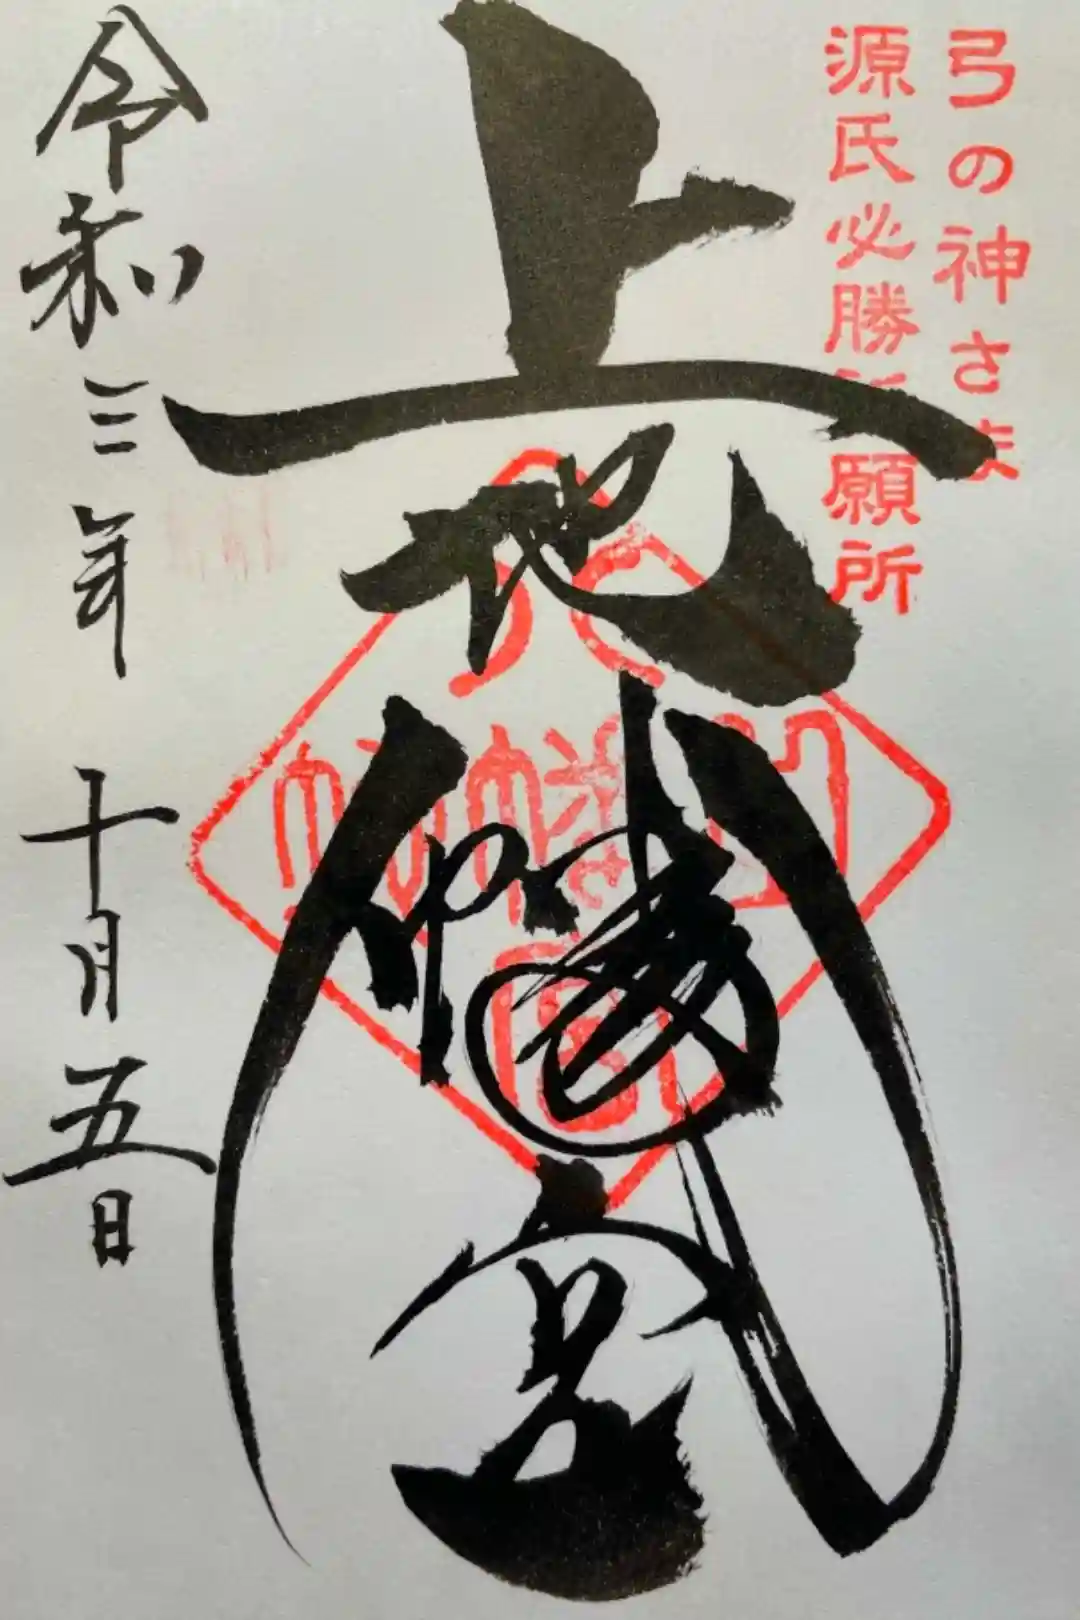 弓の神さま
源氏必勝祈願所
上地八幡宮
令和三年 十月五日